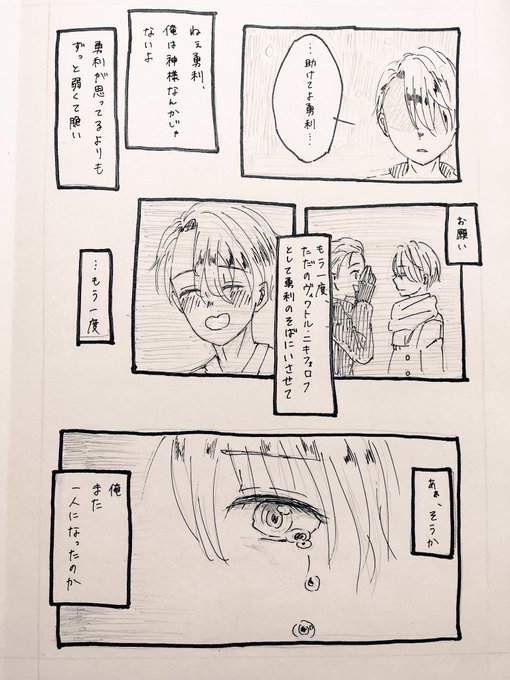 …助けてよ勇利…
ねぇ勇利、
俺は神様なんかじゃ
ないよ
勇利が思ってるよりも
ずっと弱くて脆い
お願い
もう一度、
ただのヴィクトル・ニキフォロフ
として勇利のそばにいさせて
…もう一度
あぁ、そうか
俺
また
一人になったのか